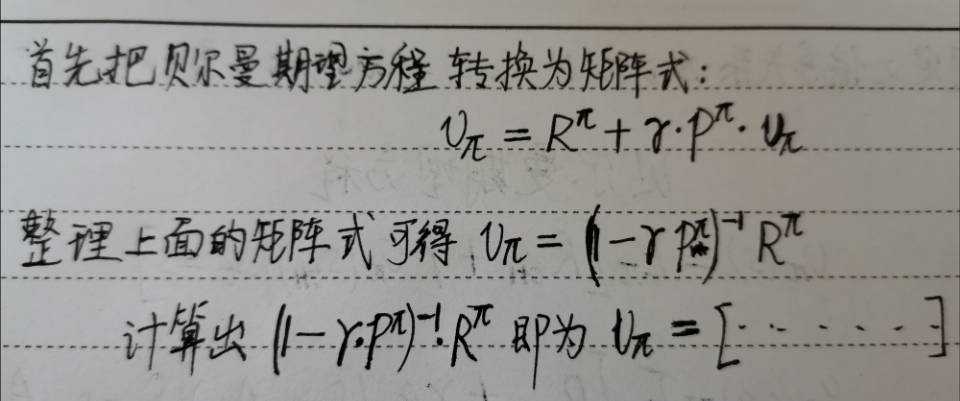 首先把贝尔曼期望方程转换为矩阵式:
υπ = Rπ + γ·Pπ·υπ
整理上面的矩阵式可得 υπ = (1-γPπ)⁻¹ Rπ
计算出 (1-γ·Pπ)⁻¹·Rπ 即为 υπ = [······]